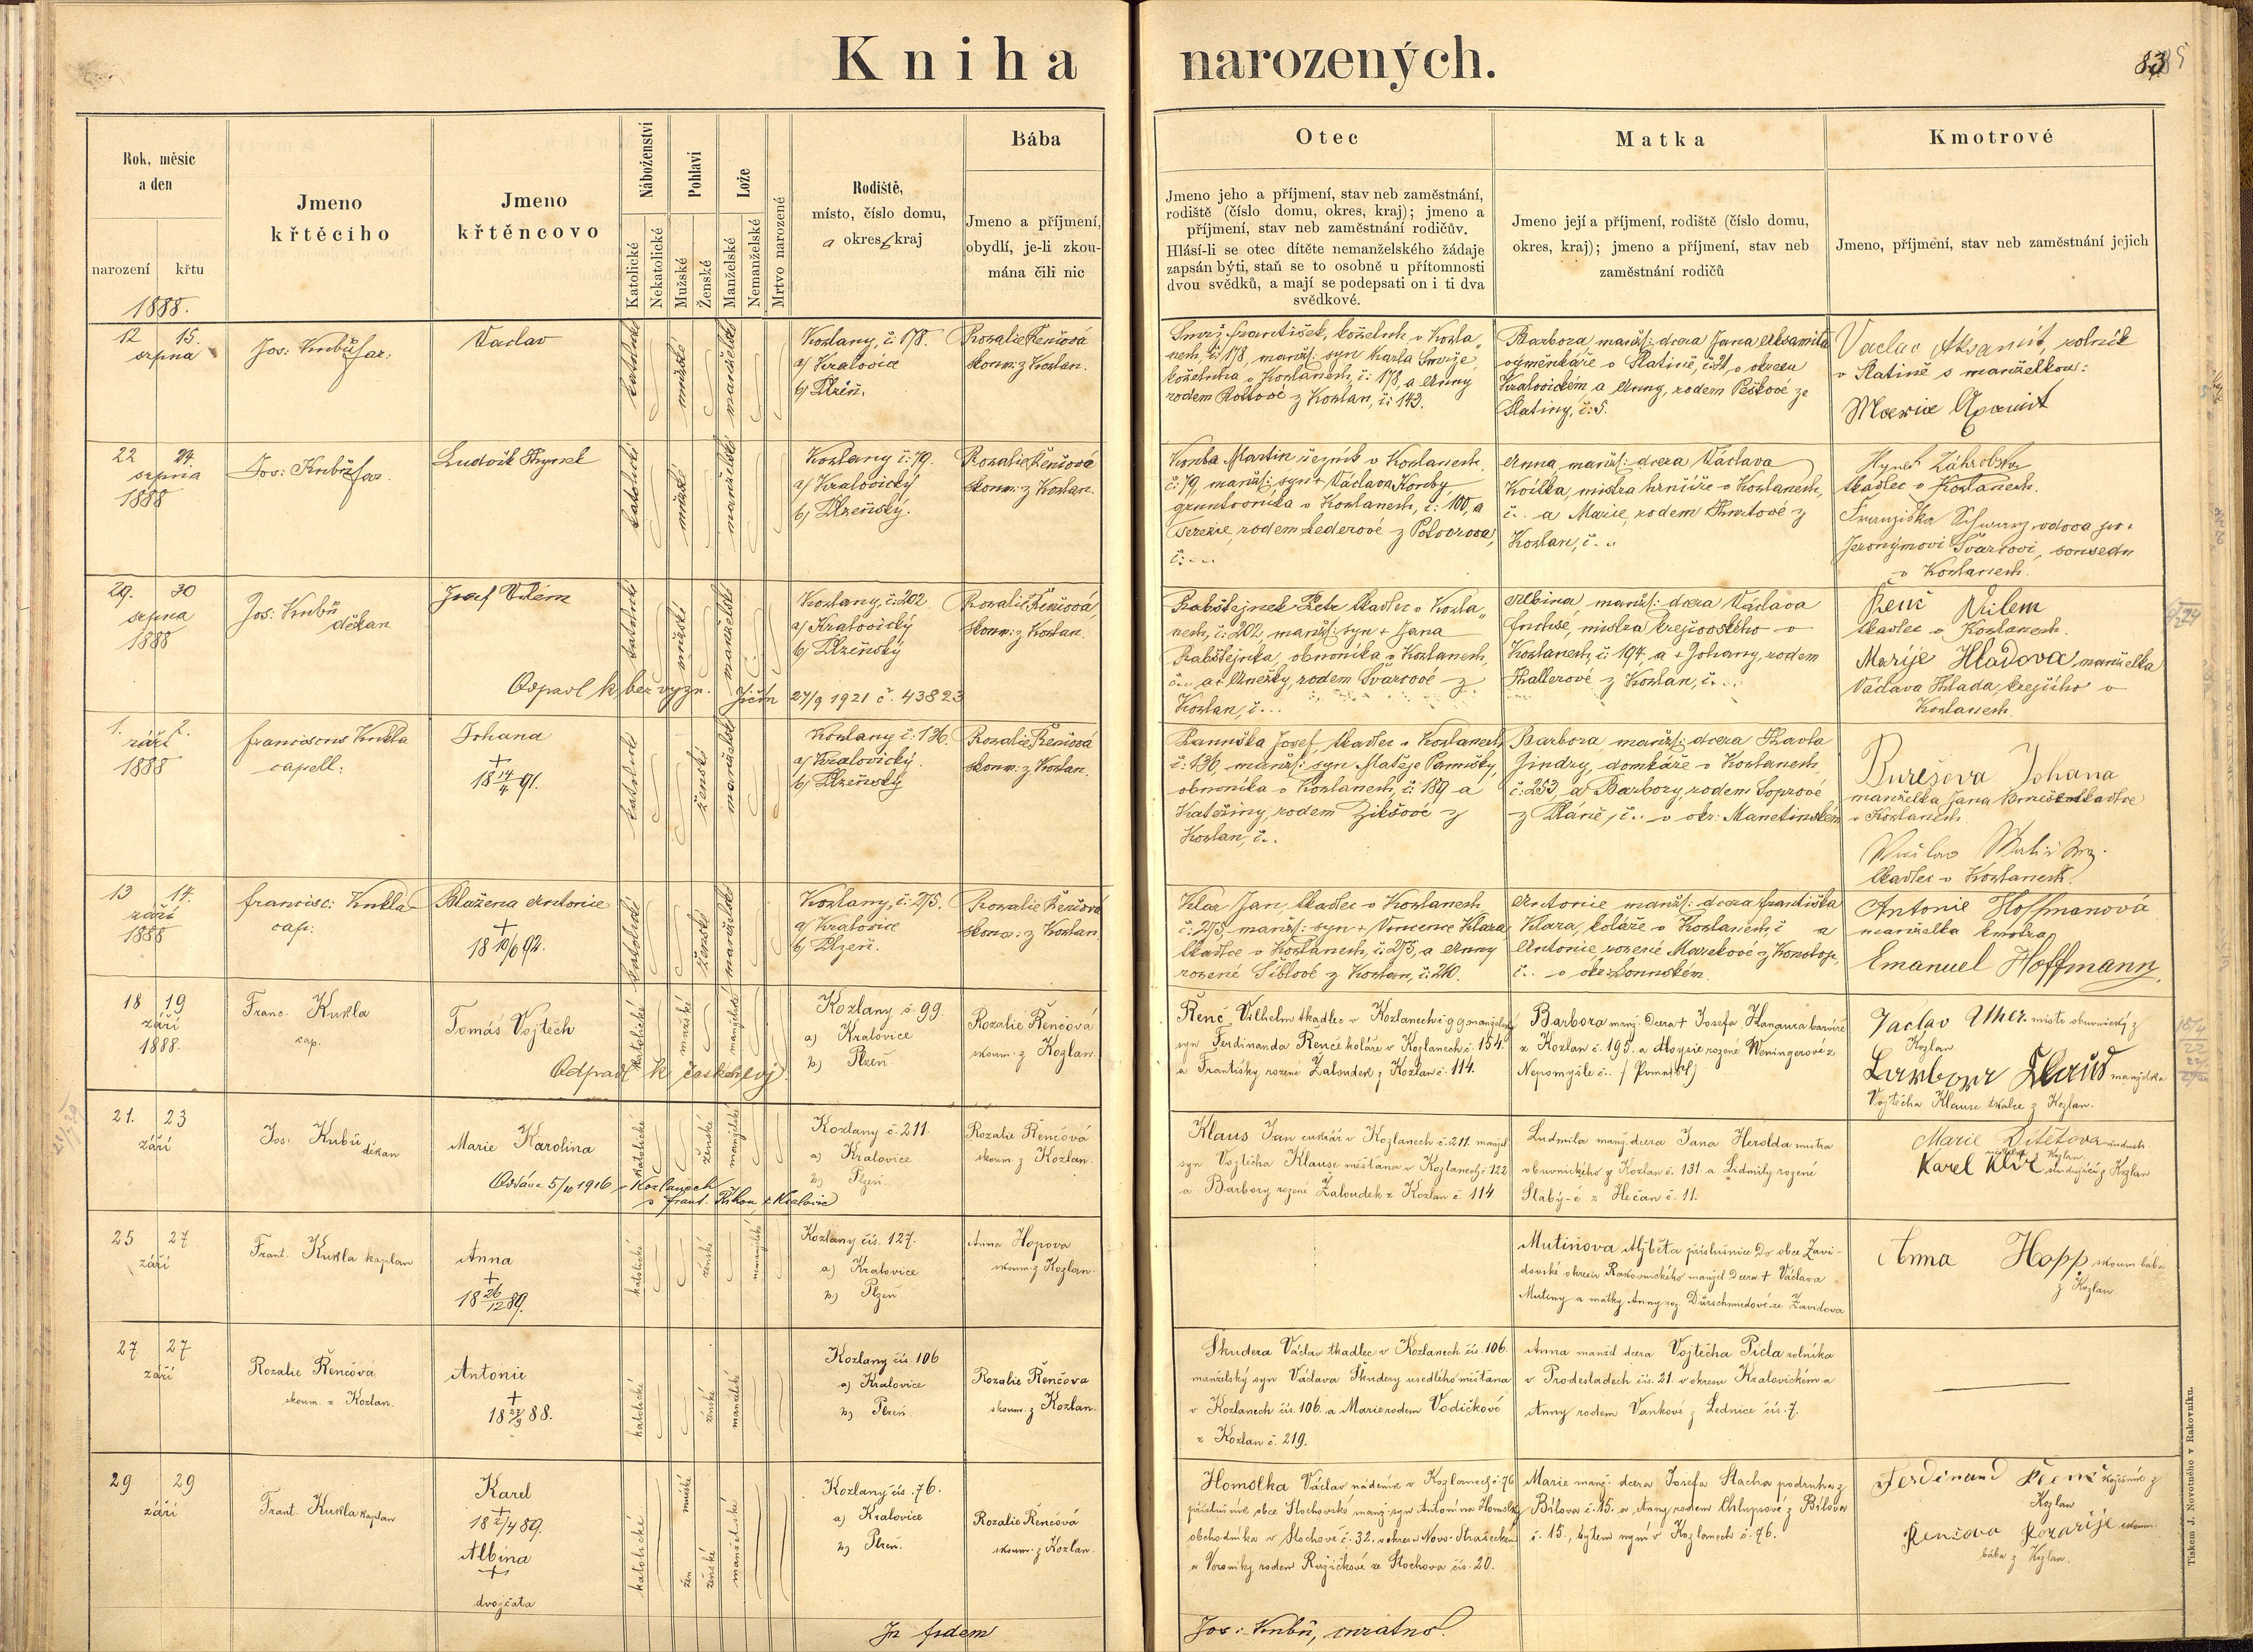 Kniha narozených.
83
Rok, měsíc
a den
narození křtu
1888.
Jmeno
křtěcího
Jmeno
křtěncovo
Náboženství
Katolické
Nekatolické
Pohlaví
Mužské
Ženské
Lože
Manželské
Nemanželské
Mrtvo narozené
Rodiště,
místo, číslo domu,
a okres b kraj
Bába
Jmeno a příjmení,
obydlí, je-li zkou-
mána čili nic
Otec
Jmeno jeho a příjmení, stav neb zaměstnání,
rodiště (číslo domu, okres, kraj); jmeno a
příjmení, stav neb zaměstnání rodičův.
Hlásí-li se otec dítěte nemanželského žádaje
zapsán býti, staň se to osobně u přítomnosti
dvou svědků, a mají se podepsati on i ti dva
svědkové.
Matka
Jmeno její a příjmení, rodiště (číslo domu,
okres, kraj); jmeno a příjmení, stav neb
zaměstnání rodičů
Kmotrové
Jmeno, příjmení, stav neb zaměstnání jejich
12 15.
srpna
Jos: Kubů far:
Vaclav
katolické
mužské
manželské
Kozlany, č. 178.
a/ Kralovice
b/ Plzeň.
Rozalie Řenčová
skoum: z Kozlan.
František, koželuh v Kozla-
nech, č: 178, manžel: syn Karla
koželuha v Kozlanech, č: 178, a Anny
z Kozlan, č: 143.
Barbora manžel: dcera Jana Aksamita
výměnkáře v Slatině, č: 21 v okresu
Kralovickém a Anny, rodem Peškové ze
Slatiny, č: 5.
Vaclav Aksamit, rolník
v Slatině s manželkou:
Marie
22 24.
srpna
1888
Jos: Kubů far.
Ludvík Hynek
katolické
mužské
manželské
Kozlany č: 79.
a/ Kralovický
b/ Plzeňský.
Rozalie Řenčová
skoum: z Kozlan.
Martin řezník v Kozlanech
č: 79, manžel: syn + Václava
gruntovníka v Kozlanech, č: 100, a
Terezie, rodem Lederové z Potvorova,
č: ...
Anna, manžel: dcera Václava
mistra hrnčíře v Kozlanech,
č.. a Marie, rodem
Kozlan, č...
Hynek
tkadlec v Kozlanech.
Franziska Schwarz vdova po +
Jeronýmovi Švarcovi, sousedu
v Kozlanech.
29. 30
srpna
1888
Jos: Kubů
děkan
Josef Vilém
katolické
mužské
manželské
Kozlany, č: 202.
a/ Kralovický
b/ Plzeňský
Rozalie Řenčová
skoum: z Kozlan.
Odpadl k bez vyzn. Jičín 27/9 1921 č. 43823
Rabštejnek Petr tkadlec v Kozla-
nech, č: 202, manžel: syn + Jana
Rabštejnka, obuvníka v Kozlanech,
č... a + Anežky, rodem Švarcové z
Kozlan, č...
Albina, manžel: dcera Václava
Fuchse, mistra krejčovského v
Kozlanech, č: 194, a + Johany, rodem
Hallerové z Kozlan, č...
Řenč Vilem
tkadlec v Kozlanech.
Marije Hladova manželka
Václava Hlada, krejčího v
Kozlanech.
1. 2.
září
1888
Franciscus Kukla
capell:
Johana
+
18 14/4 91.
katolické
ženské
manželské
Kozlany č: 136.
a/ Kralovický.
b/ Plzeňský
Rozalie Řenčová
skoum: z Kozlan.
Josef, tkadlec v Kozlanech
č: 136, manžel: syn Matěje
obuvníka v Kozlanech, č: 189 a
Kateřiny, rodem Zikšové z
Kozlan, č..
Barbora, manžel: dcera Karla
Jindry, domkáře v Kozlanech
č: 253, a Barbory, rodem Soprové
z Pláně, č.. v okr: Manetinském
Burešova Johana
manželka Jana Bureše tkadlce
v Kozlanech
Vaclav
tkadlec v Kozlanech.
13 14.
září
1888
Francisc: Kukla
cap:
Blažena Antonie
+
18 10/6 92.
katolické
ženské
manželské
Kozlany, č: 275.
a/ Kralovice
b/ Plzeň.
Rozalie Řenčová
skoum: z Kozlan.
Klar Jan, tkadlec v Kozlanech
č: 275, manžel: syn + Vincence Klara
tkadlce v Kozlanech, č: 275, a Anny
rozené z Kozlan, č: 240.
Antonie manžel: dcera Františka
Klara, koláře v Kozlanech, č a
Antonie, rozené Marekové z Konstop,
č.. v okr. Lounském.
Antonie Hoffmanová
manželka kmotra
Emanuel Hoffmann.
18 19
září
1888.
Franc. Kukla
cap.
Tomáš Vojtěch
katolické
mužské
manželské
Kozlany č. 99.
a) Kralovice
b) Plzeň.
Rozalie Řenčová
skoum. z Kozlan.
Odpadl k českosl. cj.
Řenč Vilhelm tkadlec v Kozlanech č 99 manželský
syn Ferdinanda Řenče koláře v Kozlanech č. 154.
a Františky rozené Žaloudek z Kozlan č. 114.
Barbora manž. dcera + Josefa Hanaura barvíře
z Kozlan č. 195. a Aloysie rozené Weningerové z
Nepomyšle č..
Václav Uher. mistr obuvnický z
Kozlan.
Barbora Klauš manželka
Vojtěcha Klause tkalce z Kozlan.
21. 23
září
Jos. Kubů
děkan
Marie Karolina
katolické
ženské
manželské
Kozlany č. 211.
a) Kralovice
b) Plzeň.
Rozalie Řenčová
skoum. z Kozlan.
Oddána 5/10 1916 v Kozlanech
s Frant. Říhou z Kralovic
Klaus Jan cukrář v Kozlanech č. 211. manžel.
syn Vojtěcha Klause měšťana v Kozlanech č. 122
a Barbory rozené Žaloudek z Kozlan č. 114
Ludmila manž. dcera Jana Herolda mistra
obuvnického z Kozlan č. 131. a Lidmily rozené
Slabý-é z Hečan č. 11.
Marie
Karel Klír studující z Kozlan
25 27
září
Frant. Kukla kaplan
Anna
+
18 26/12 89.
katolické
ženské
nemanželské
Kozlany čís. 127.
a) Kralovice
b) Plzeň
Anna Hopova
skoum. z Kozlan.
Mutinova Alžběta příslušnice do obce Zavi-
dovské okresu Rakovnického manžel dcera + Václava
Mutiny a matky Anny roz. Dürschmiedové ze Zavidova
Anna Hopp skoum. bába
z Kozlan.
27. 27
září
Rozalie Řenčová
skoum. z Kozlan.
Antonie
+
18 27/9 88.
katolické
ženské
manželské
Kozlany čís. 106
a) Kralovice
b) Plzeň.
Rozalie Řenčova
skoum. z Kozlan.
Škudera Václav tkadlec v Kozlanech čís. 106.
manželský syn Václava Škudery usedlého měšťana
v Kozlanech čís. 106. a Marie rodem Vodičkové
z Kozlan č. 219.
Anna manžel dcera Vojtěcha Picla rolníka
v Prodesladech čís. 21. v okresu Kralovickém a
Anny rodem Vankové z Lednice čís. 7.
29 29
září
Frant. Kukla kaplan
Karel
+
18 2/4 89.
Albina
+
dvojčata
katolické
mužské
žen
ženské
manželské
Kozlany čís. 76.
a) Kralovice
b) Plzeň.
Rozalie Řenčová
skoum. z Kozlan.
Homolka Václav nádeník v Kozlanech č. 76
příslušník obce Stochovské manž. syn Antonína Homolky
obchodníka v Stochově č. 32. v okresu Novo-Strašeckém
a Veroniky rodem Ružičkové ze Stochova čís. 20.
Marie manž. dcera Josefa Stacha podruha z
Bílova č. 15. a Anny rodem Chlupsové z Bílova
č. 15., bytem nyní v Kozlanech č. 76.
Ferdinand Řenč z
Kozlan
Řenčova Rozarije skoum.
bába z Kozlan.
In fidem Jos: Kubů, curatus.
Tiskem J. Novotného v Rakovníku.